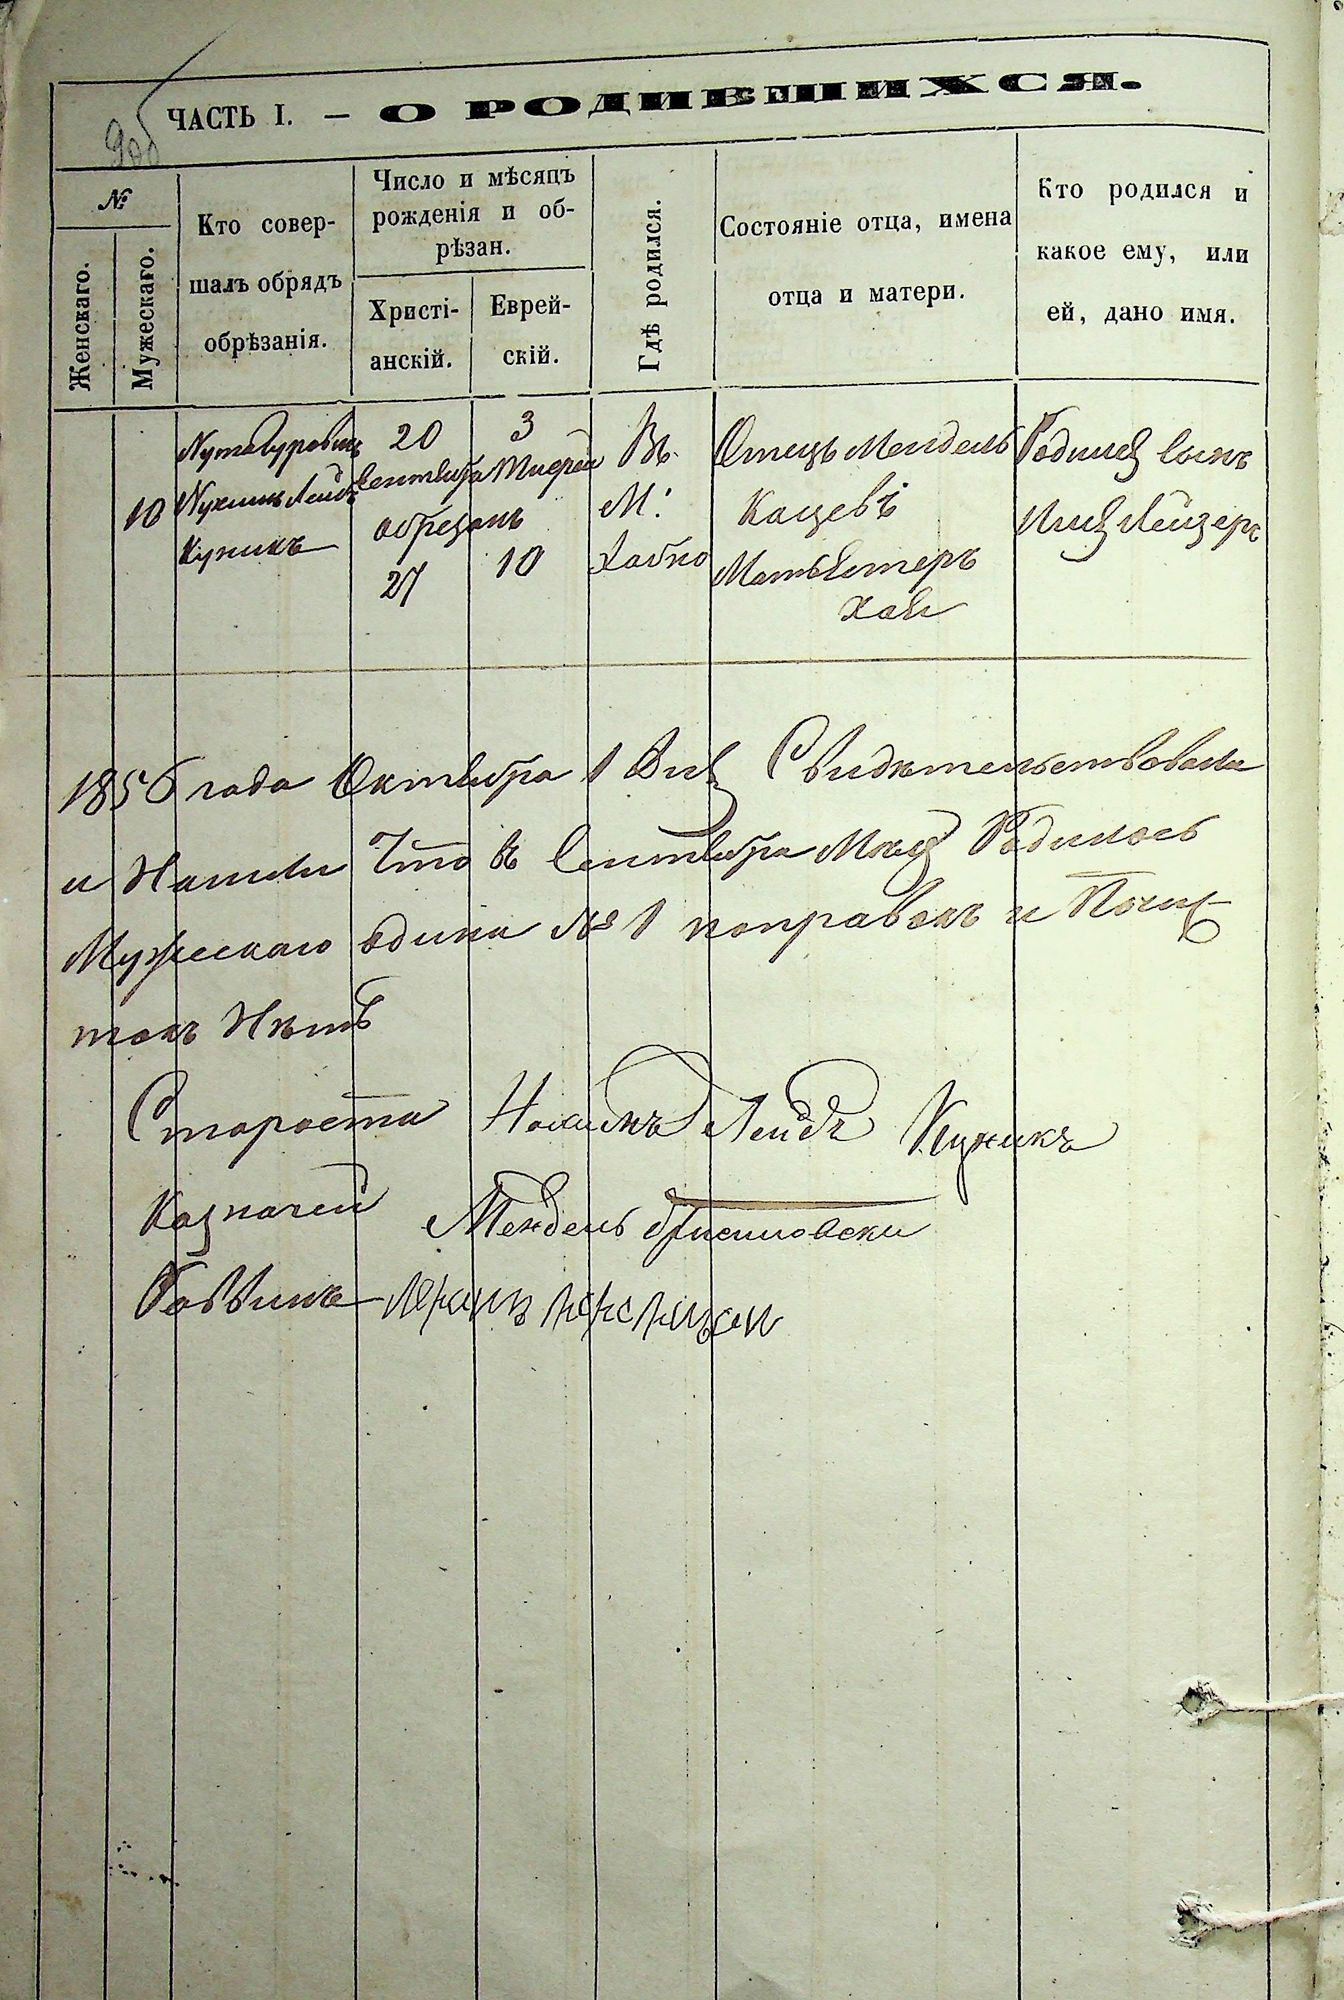 ЧАСТЬ I. — О РОДИВШИХСЯ.
№
Женскаго.
Мужескаго.
Кто совер-
шалъ обрядъ
обрѣзанія.
Число и мѣсяцъ
рожденія и об-
рѣзан.
Христі-
анскій.
Еврей-
скій.
Гдѣ родился.
Состояніе отца, имена
отца и матери.
Кто родился и
какое ему, или
ей, дано имя.
10
Куникъ
20
Сентября
обрезанъ
27
3
Тисрей
10
Въ
М:
Хабно
Отецъ Мендель
Кацевъ
Мать Естеръ
Хая
Родился Сынъ
Имя Лейзеръ
1856 года Октября 1 Дня Свидѣтельствовали
и Нашли Что въ Сентябрѣ Мцѣ Родилось
Мужескаго одинъ № 1 поправокъ и Почис
токъ Нѣтъ
Староста Нохимъ Лейбъ Куникъ
Казначей Мендель
Раввинъ